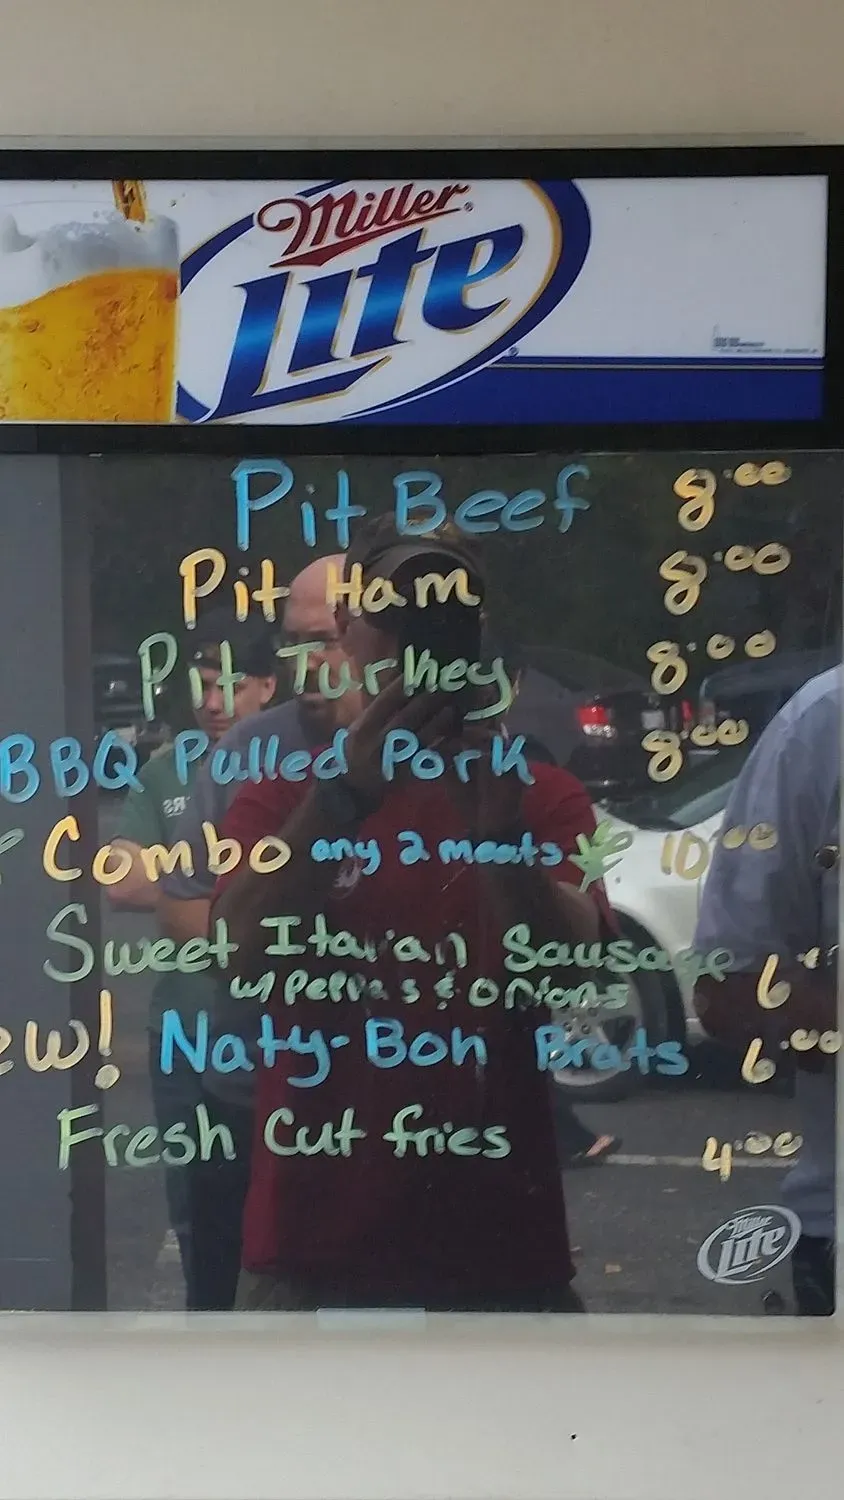 Miller
Lite
Pit Beef 8.00
Pit Ham 8.00
Pit Turkey 8.00
BBQ Pulled Pork 8.00
Combo any 2 meats 10.00
Sweet Italian Sausage 6
w/ Peppers & onions
ew! Naty-Boh Brats 6.00
Fresh Cut fries 4.00
Miller
Lite